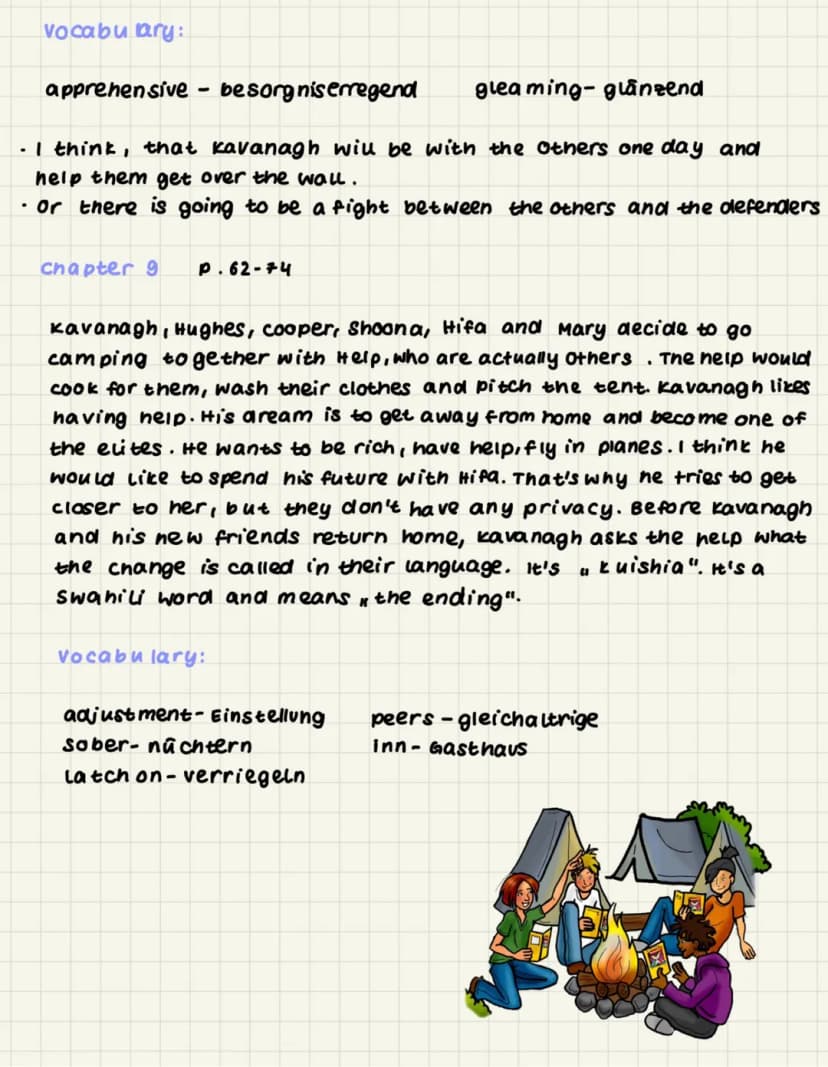 Vocabulary:
apprehensive - besorgniserregend gleaming - glänzend
· I think, that Kavanagh will be with the Others one day and
help them get over the wall.
· Or there is going to be a fight between the others and the defenders
Chapter 9 p. 62-74
Kavanagh, Hughes, Cooper, Shoona, Hifa and Mary decide to go
camping together with Help, who are actually Others. The help would
cook for them, wash their clothes and pitch the tent. Kavanagh likes
having help. His dream is to get away from home and become one of
the elites. He wants to be rich, have help, fly in planes. I think he
would like to spend his future with Hifa. That's why he tries to get
closer to her, but they don't have any privacy. Before Kavanagh
and his new friends return home, Kavanagh asks the help what
the change is called in their language. It's „Kuishia". It's a
Swahili word and means „the ending".
Vocabulary:
adjustment - Einstellung peers - gleichaltrige
sober - nüchtern Inn - Gasthaus
Latch on - verriegeln